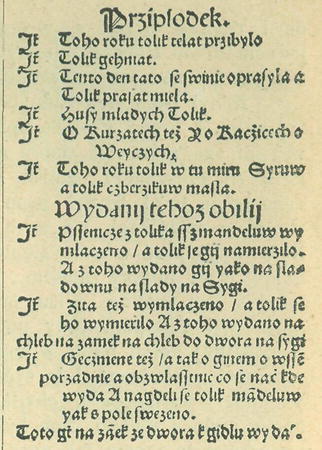 Przipłodek.
Jt̃ Toho roku tolik telat przibylo
Jt̃ Tolik gehniat.
Jt̃ Tento den tato se swinie oprasyla a
Tolik prasat miela.
Jt̃ Husy mladych Tolik.
Jt̃ O Kurzatech też Ko Kaczicech o
Weyczych.
Jt̃ Toho roku tolik w tu miru Syruw
a tolik czberzikuw masla.
Wydanij tehoz obilij
Jt̃ Pssenicze z tolika ssz mandeluw wy
mlaczeno / a tolik je gij namierzilo.
A z toho wydano gij yako na sla-
downu na slady na Sygi.
Jt̃ Zita też wymlaczeno / a tolik se
ho wymierilo A z toho wydano na
chleb na zamek na chleb do dwora na sygi
Jt̃ Geczmene też / a tak o ginem o wssẽ
porzadnie a obzwlasstnie co se nač kde
wyda A nagdeli se tolik mãdeluw
yak s pole swezeno.
Toto gt̃ na zãek ze dwora k gidlu wyda°.